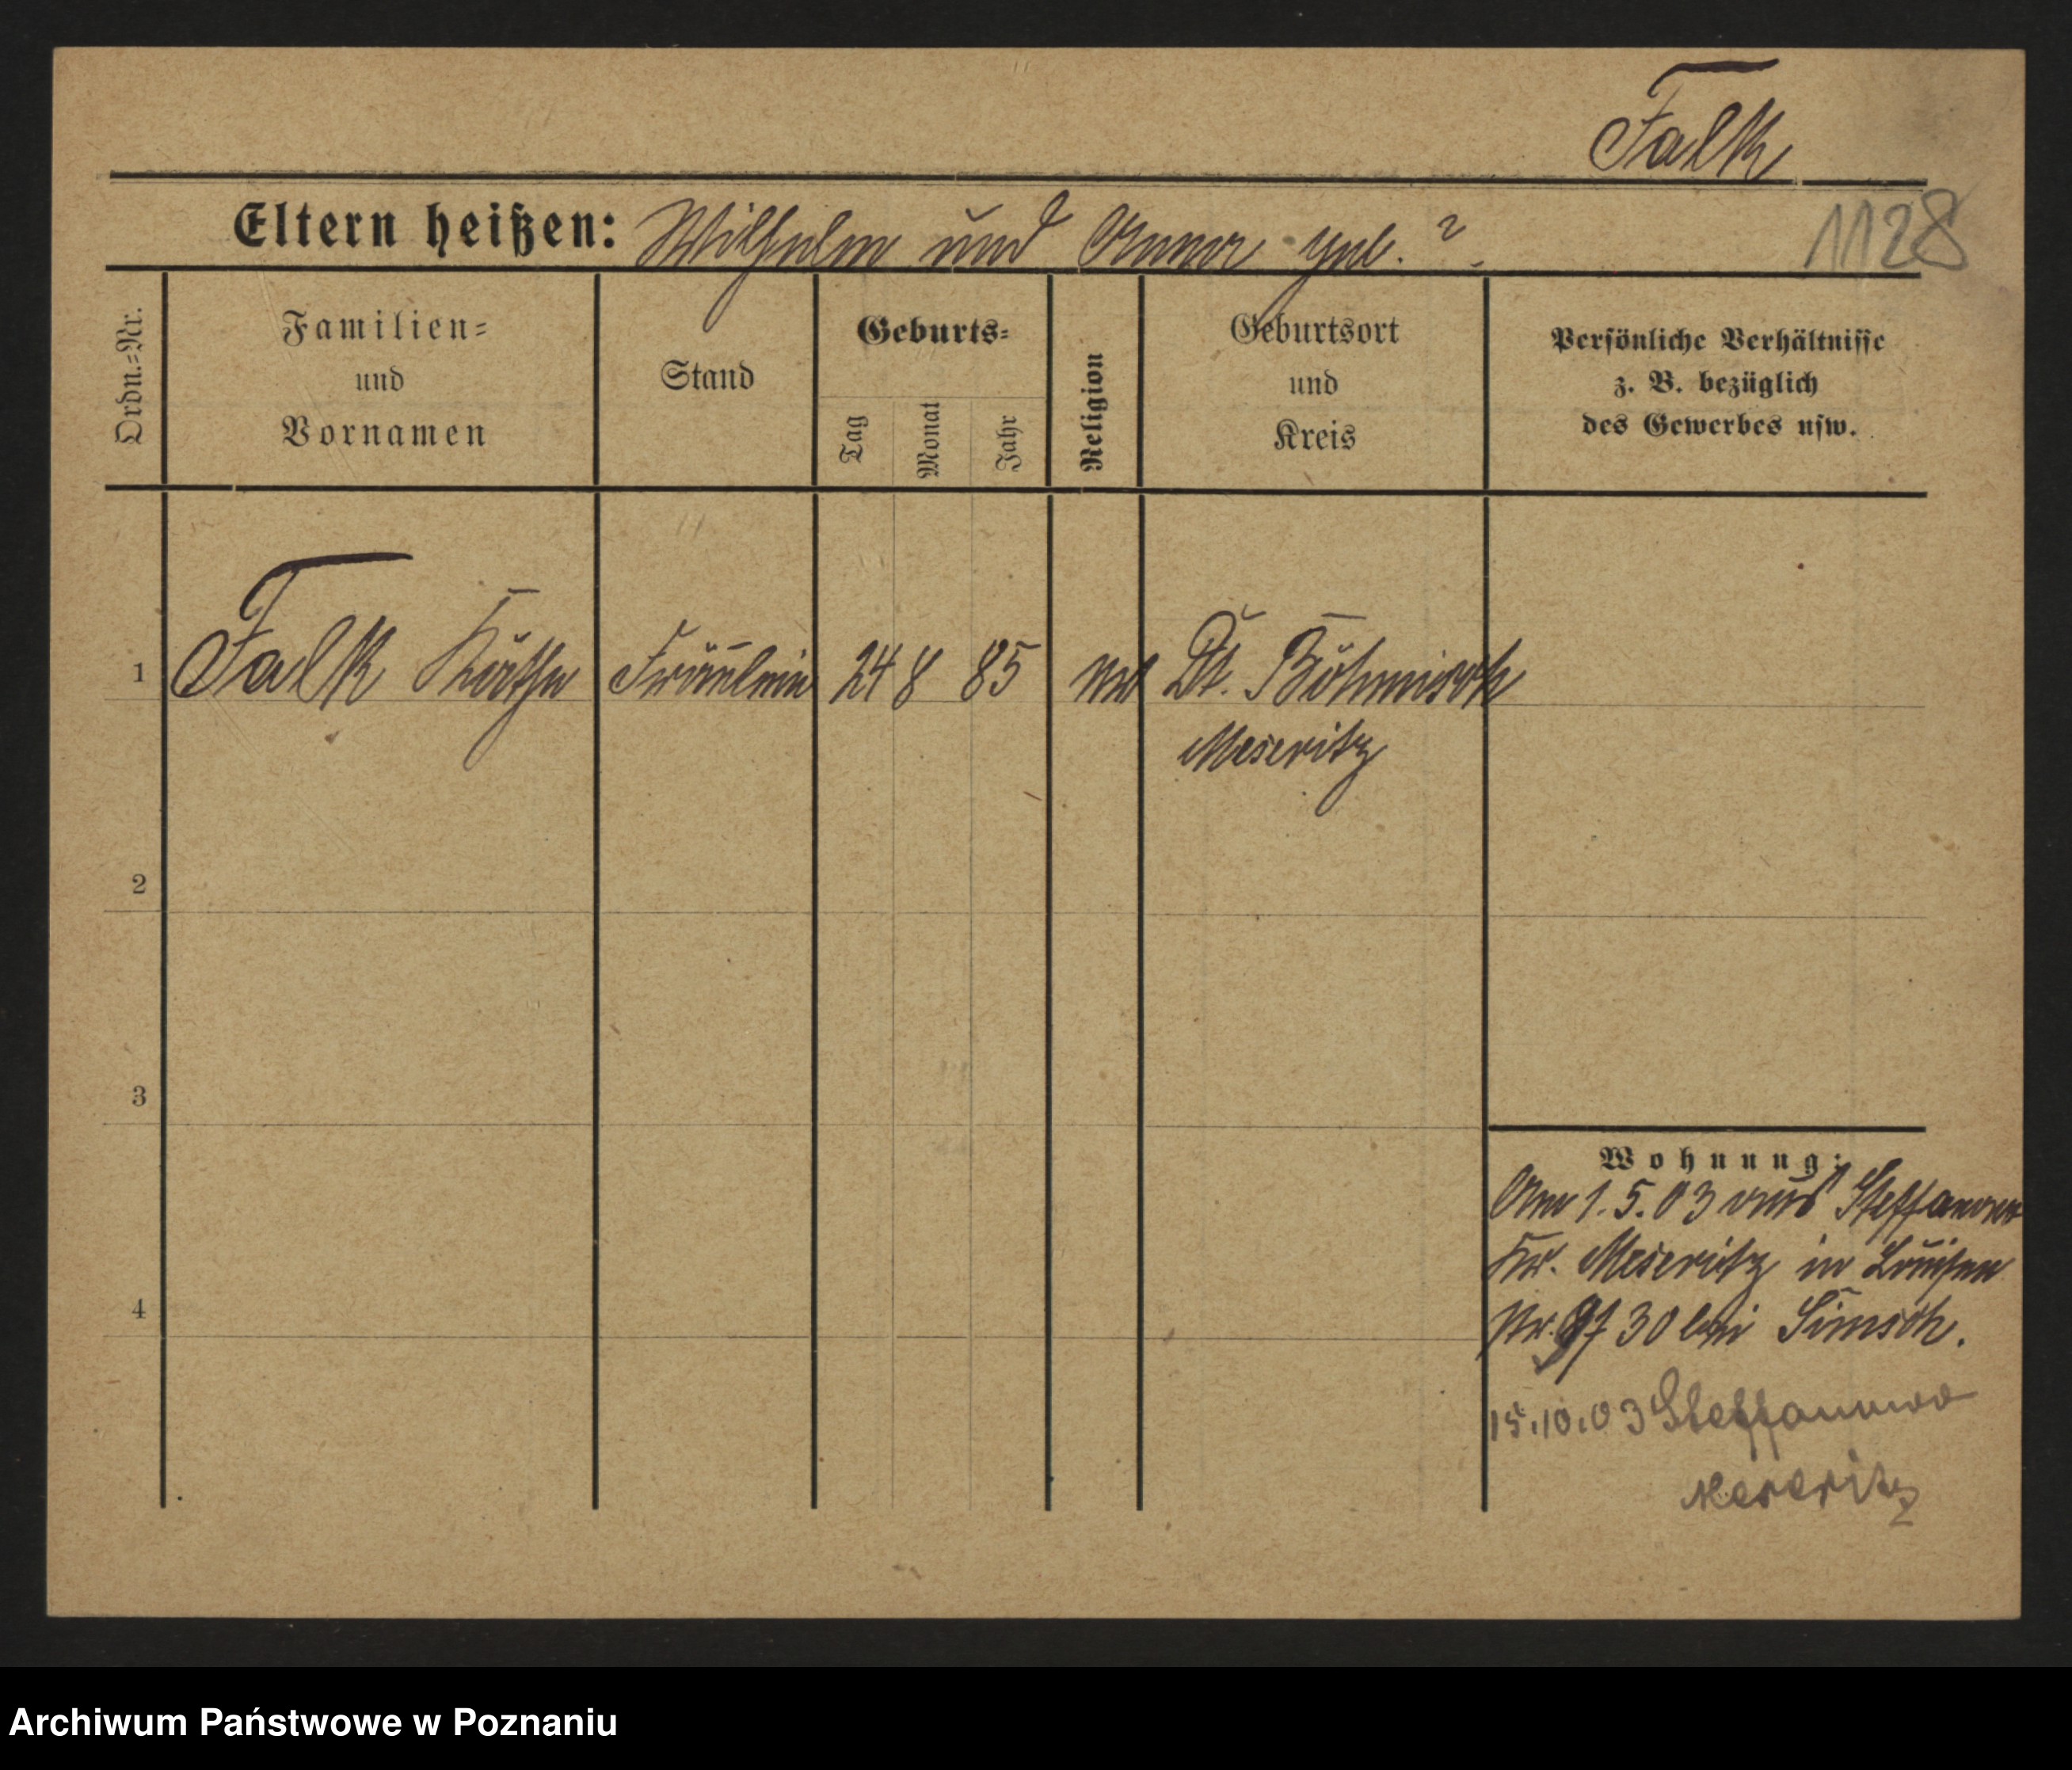 Falk
Eltern heißen: Wilhelm und Anna geb. ?
1128
Ordn.=Nr.
Familien=
und
Vornamen
Stand
Geburts=
Tag
Monat
Jahr
Religion
Geburtsort
und
Kreis
Persönliche Verhältnisse
z. B. bezüglich
des Gewerbes usw.
1 Falk Käthe Fräulein 24 8 85 Dt. Böhmisch
Meseritz
2
3
4
Wohnung:
Am 1.5.03 aus Steffanowo
Kr. Meseritz in Louisen
Nr. 30 bei Simsch.
15.10.03 Steffanowo
Meseritz
Archiwum Państwowe w Poznaniu